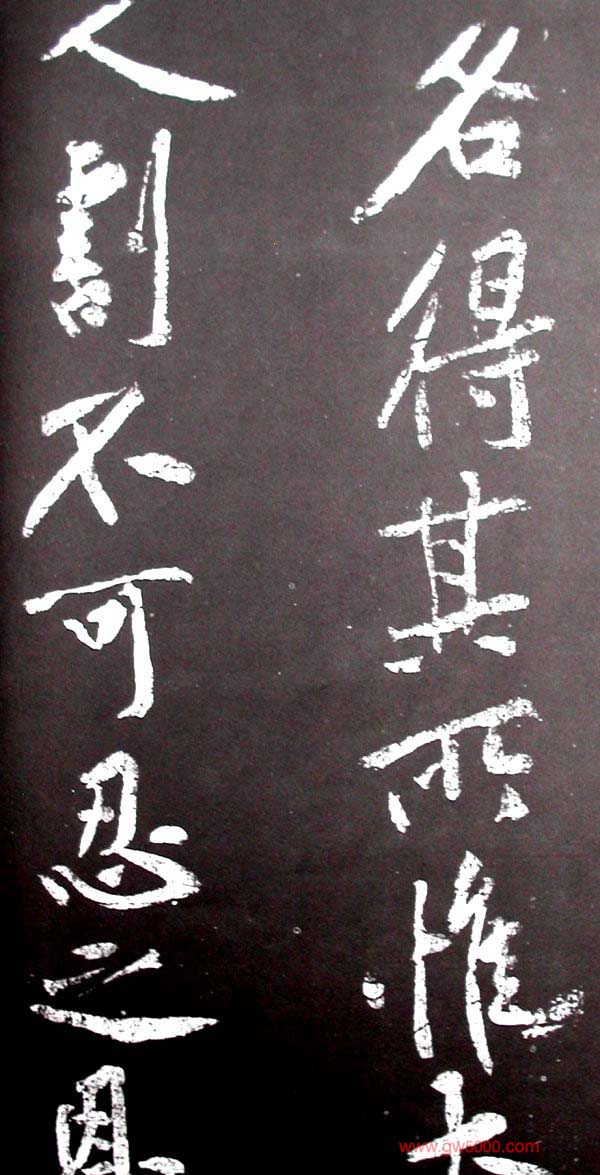 各得其所惟大
人割不可忍之恩
www.gw5000.com